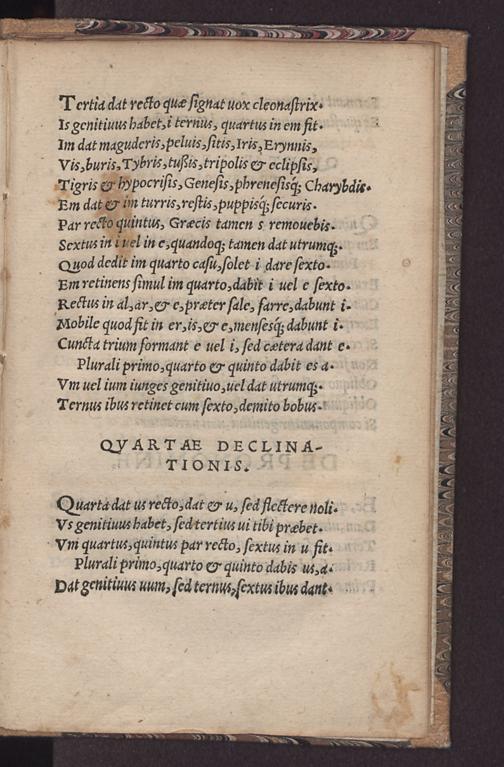 Tertia dat recto quæ signat uox cleonastrix.
Is genitiuus habet, i ternus, quartus in em fit.
Im dat maguderis, peluis, sitis, Iris, Erynnis,
Vis, buris, Tybris, tußis, tripolis & eclipsis,
Tigris & hypocrisis, Genesis, phrenesisq́; Charybdis.
Em dat & im turris, restis, puppisq; securis.
Par recto quintus, Græcis tamen s remouebis.
Sextus in i uel in e, quandoq; tamen dat utrumq;.
Quod dedit im quarto casu, solet i dare sexto.
Em retinens simul im quarto, dabit i uel e sexto.
Rectus in al, ar, & e, præter sale, farre, dabunt i.
Mobile quod fit in er, is, & e, mensesq; dabunt i.
Cuncta trium formant e uel i, sed cætera dant e.
Plurali primo, quarto & quinto dabit es a.
Vm uel ium iunges genitiuo, uel dat utrumq;.
Ternus ibus retinet cum sexto, demito bobus.
QVARTAE DECLINA-
TIONIS.
Quarta dat us recto, dat & u, sed flectere noli.
Vs genitiuus habet, sed tertius ui tibi præbet.
Vm quartus, quintus par recto, sextus in u fit.
Plurali primo, quarto & quinto dabis us, a.
Dat genitiuus uum, sed ternus, sextus ibus dant.